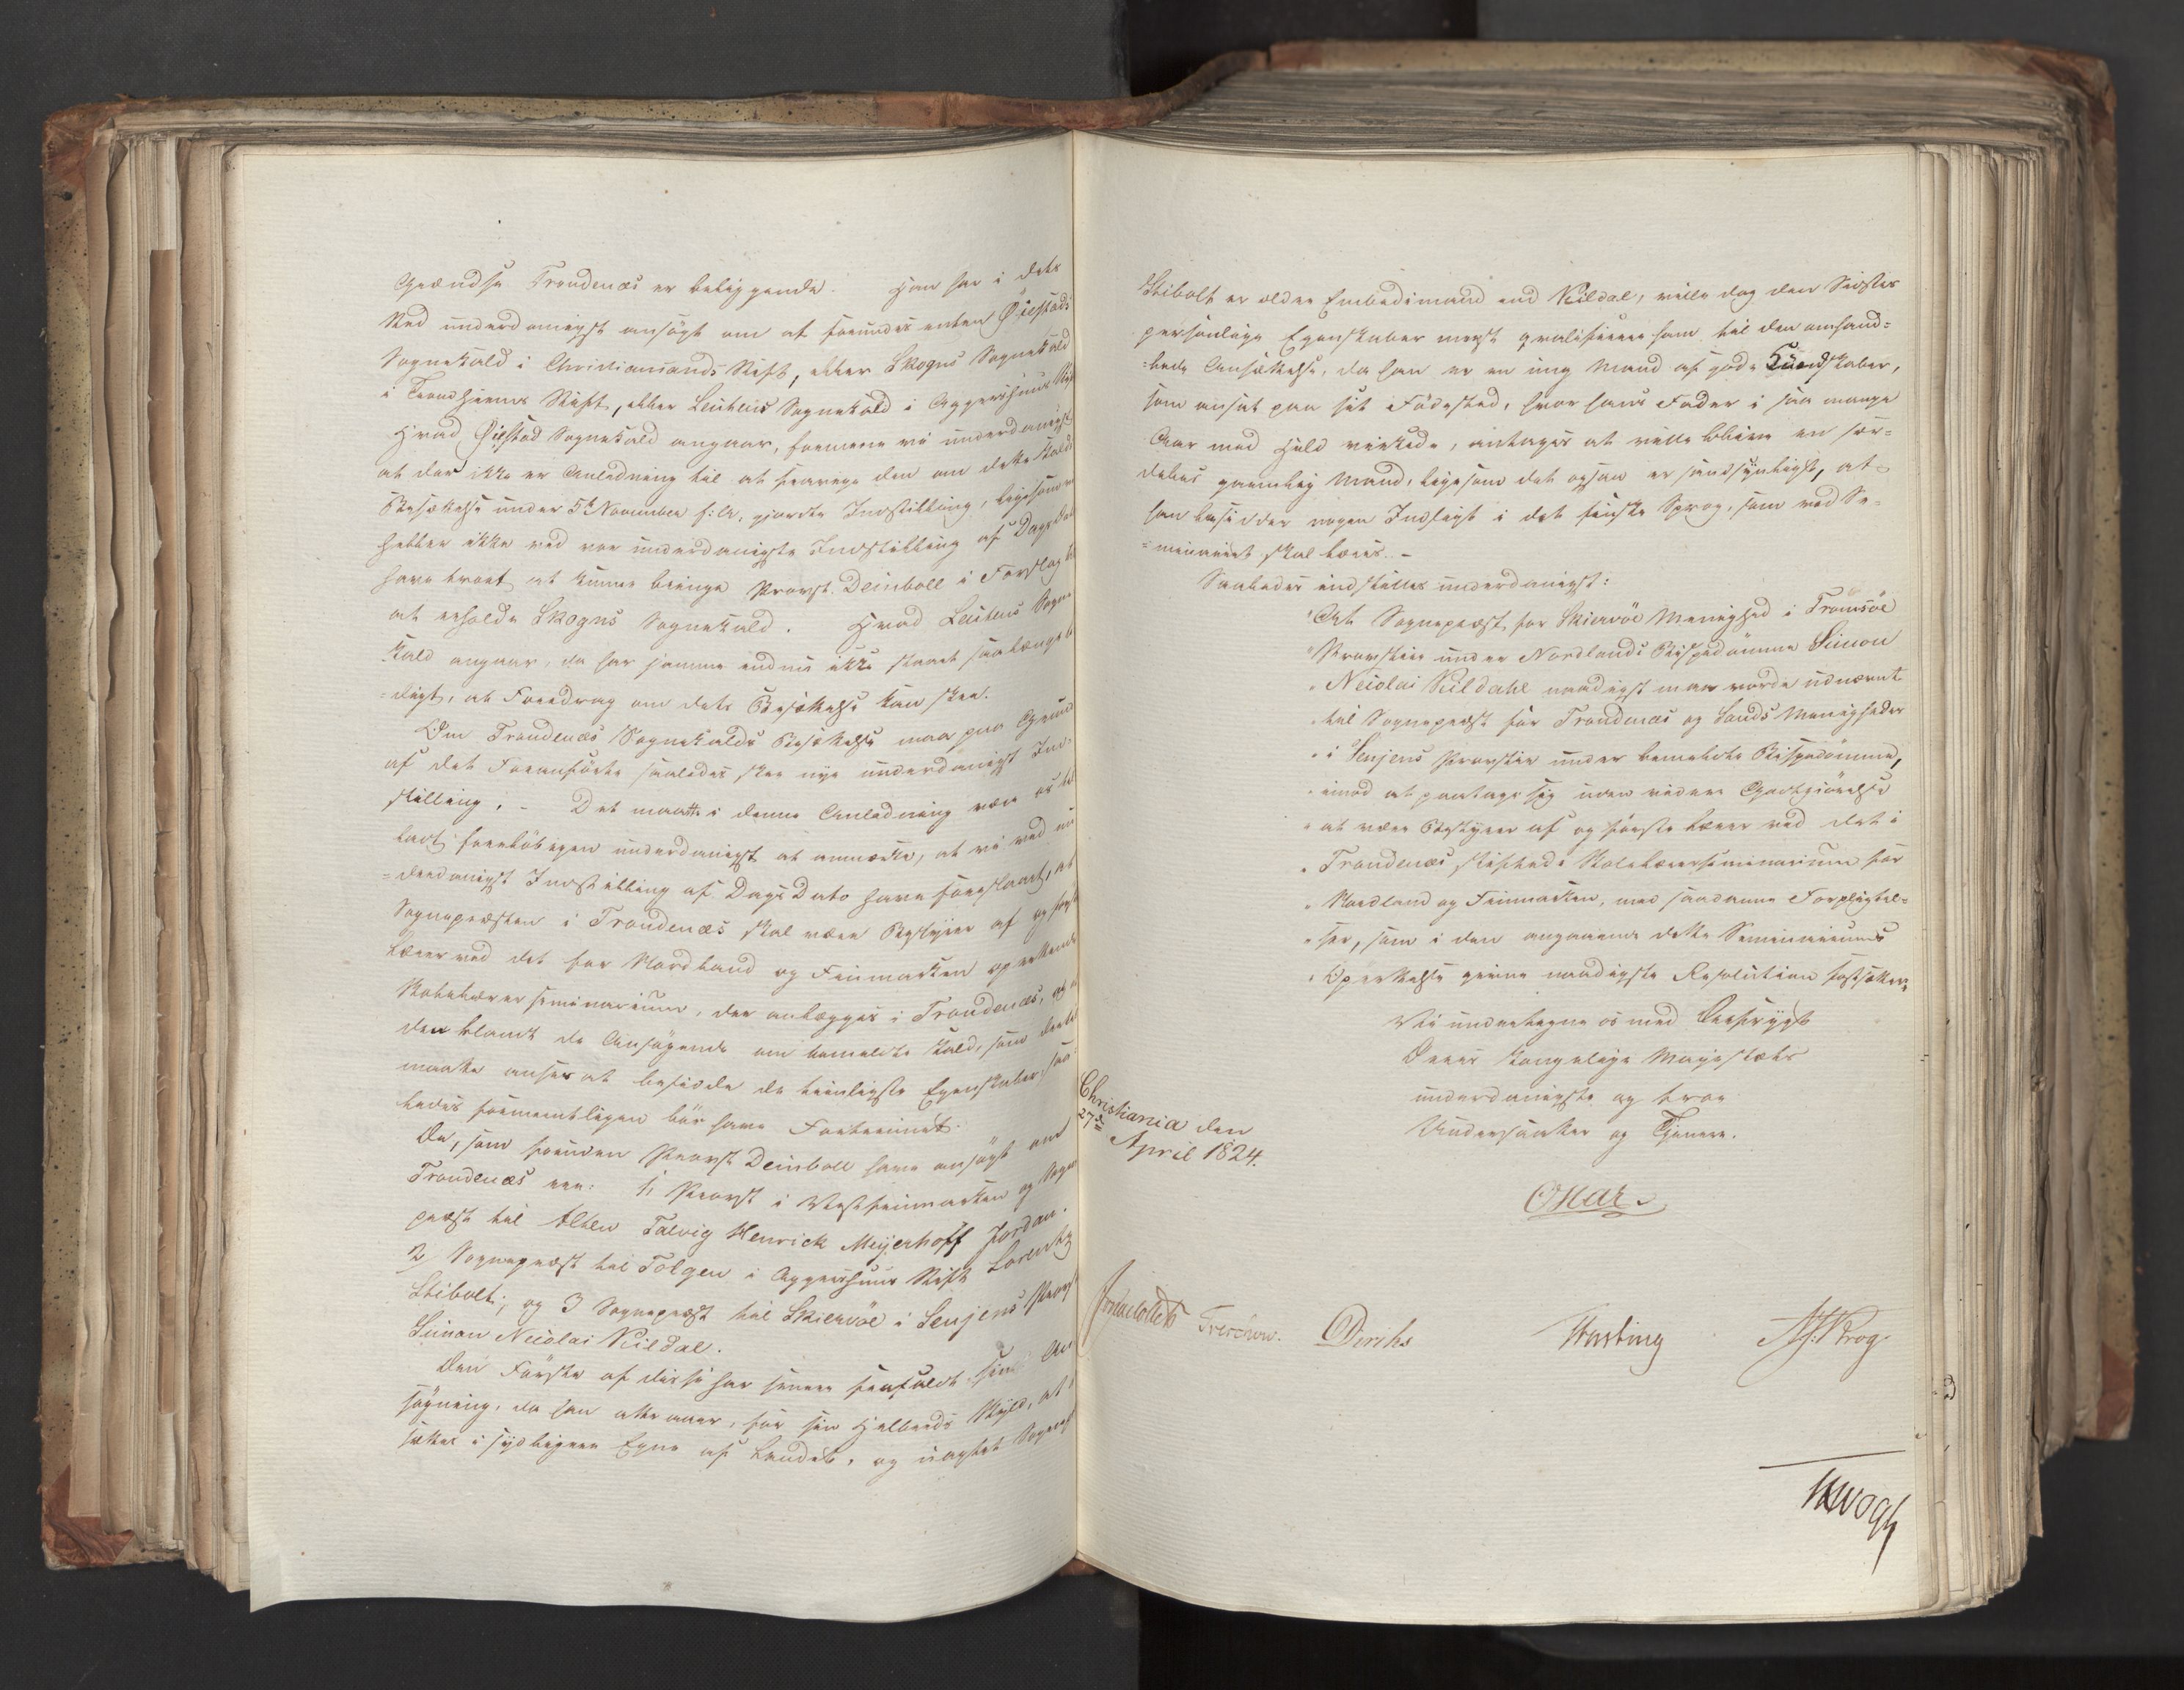 Grændse Trondenæs er beliggende. Han har i dets
Sted underdanigst ansøgt om at forundes enten Øiestads
Sognekald i Christiansands Stift, eller Skogns Sognekald
i Trondhjems Stift, eller Leutens Sognekald i Aggershuus Stift
Hvad Øiestad Sognekald angaar, formene vi underdanigst
at der ikke er Anledning til at fravige den om dette Kalds
Besættelse under 5te November f: A. gjorte Indstilling, ligesom vi
heller ikke ved vor underdanigste Indstilling af Dags Dato
have troet at kunne bringe Provst Deinboll i Forslag til
at erholde Skogns Sognekald. Hvad Leutens Sogne
Kald angaar, da har samme endnu ikke staaet saalænge le
=digt, at Foredrag om dets Besættelse kan skee.
Om Trondenæs Sognekalds Besættelse maa paa Grund
af det Foranførte saaledes skee nye underdanigst Ind-
stilling. - Det maatte i denne Anledning være os til
ladt foreløbigen underdanigst at anmærke, at vi ved un
=derdanigst Indstilling af Dags Dato have foreslaaet, at
Sognepræsten i Trondenæs skal være Bestyrer af og første
Lærer ved det for Nordland og Finmarken oprettende
Skolelærerseminarium, der anlægges i Trondenæs, og at
den blandt de Ansøgende om bemeldte Kald, som dertil
maatte ansees at besidde de tjenligste Egenskaber, saa
ledes formeentligen bør have Fortrinnet.
De, som foruden Provst Deinboll have ansøgt om
Trondenæs ere: 1, Provst i Vestfinmarken og Sogne
præst til Alten Talvig Henrick Meyerhoff Jordan.
2, Sognepræst til Tolgen i Aggershuus Stift Lorentz
Stibolt; og 3 Sognepræst til Skiervøe i Senjens Provst
Simon Nicolai Kildal.
Den Første af disse har senere frafaldt sin An
søgning, da han attraaer, for sin Helbreds Skyld, at
sættes i sydligere Egne af Landet, og uagtet Sognepræst
Stibolt er ældre Embedsmand end Kildal, ville dog den Sidstes
personlige Egenskaber mest qvalificere ham til den omhand=
=lede Ansættelse, da han er en ung Mand af gode Kundskaber,
som ansat paa sit Fødested, hvor hans Fader i saa mange
Aar med Held virkede, antages at ville blive en sær=
deles gavnlig Mand, ligesom det ogsaa er sandsynligt, at
han besidder nogen Indsigt i det finske Sprog, som ved Se=
=minariet skal læres. -
Saaledes indstilles underdanigst:
"At Sognepræst for Skiervøe Menighed i Tromsøe
"Provstie under Nordlands Bispedømme Simon
"Nicolai Kildahl naadigst maa vorde udnævnt
"til Sognepræst for Trondenæs og Sands Menigheder
"i Senjens Provstie under bemeldte Bispedømme,
"imod at paatage sig uden videre Godtgiørelse
"at være Bestyrer af og første Lærer ved det i
"Trondenæs stiftede Skolelærerseminarium for
"Nordland og Finmarken, med saadanne Forpligtel=
"ser, som i den angaaende dette Seminariums
"Oprettelse givne naadigste Resolution fastsættes"
Vi undertegne os med Ærefrygt
Deres Kongelige Majestæts
underdanigste og troe
Undersaatter og Tjenere.
Christiania den
27de April 1824.
Oskar
Treschow. Diriks Hasting Krog